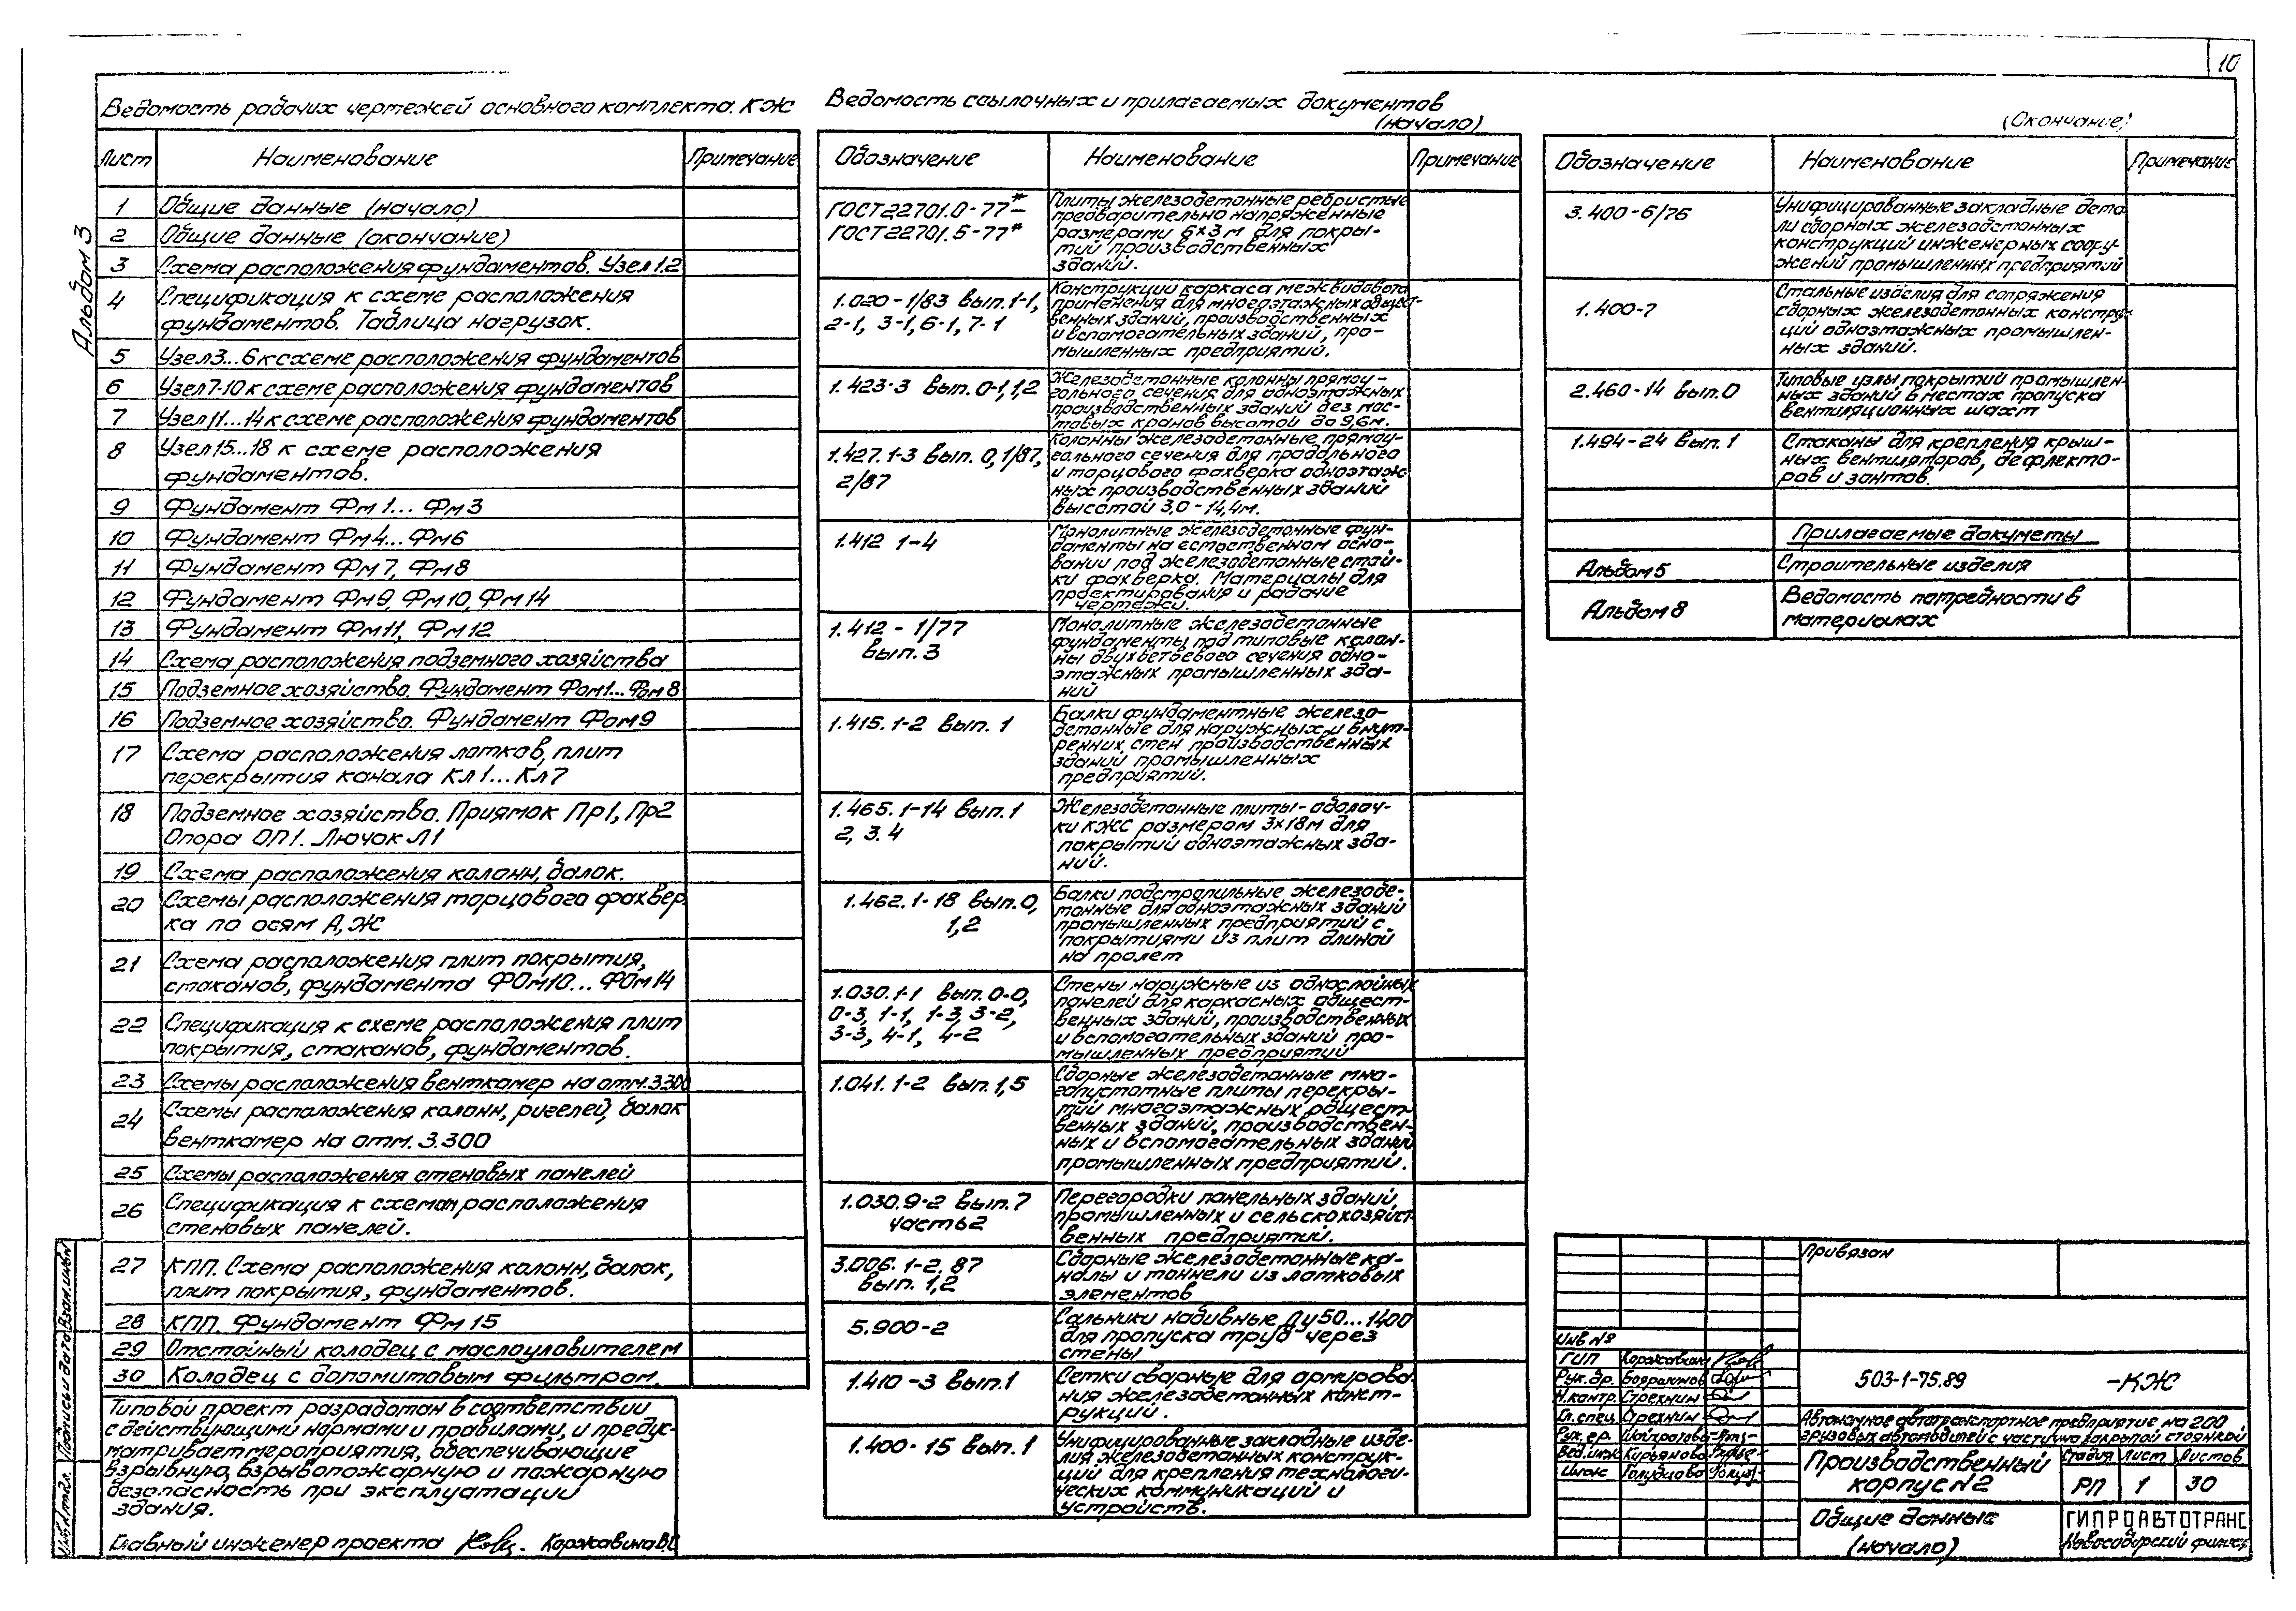 10
Альбом 3
Ведомость рабочих чертежей основного комплекта КЖ
Лист Наименование Примечание
1 Общие данные (начало)
2 Общие данные (окончание)
3 Схема расположения фундаментов. Узел 1.2
4 Спецификация к схеме расположения
фундаментов. Таблица нагрузок.
5 Узел 3...6 к схеме расположения фундаментов
6 Узел 7-10 к схеме расположения фундаментов
7 Узел 11...14 к схеме расположения фундаментов
8 Узел 15...18 к схеме расположения
фундаментов.
9 Фундамент Фм 1... Фм 3
10 Фундамент Фм 4... Фм 6
11 Фундамент Фм 7, Фм 8
12 Фундамент Фм 9, Фм 10, Фм 14
13 Фундамент Фм 11, Фм 12
14 Схема расположения подземного хозяйства
15 Подземное хозяйство. Фундамент Фом 1... Фом 8
16 Подземное хозяйство. Фундамент Фом 9
17 Схема расположения лотков, плит
перекрытия канала Кл 1...Кл 7
18 Подземное хозяйство. Приямок Пр1, Пр2
Опора ОП1. Лючок Л1
19 Схема расположения колонн, балок.
20 Схемы расположения торцового фахвер
ка по осям А, Ж
21 Схема расположения плит покрытия,
стаканов, фундамента ФОм10... ФОм14
22 Спецификация к схеме расположения плит
покрытия, стаканов, фундаментов.
23 Схемы расположения венткамер на отм. 3.300
24 Схемы расположения колонн, ригелей, балок
венткамер на отм. 3.300
25 Схемы расположения стеновых панелей
26 Спецификация к схемам расположения
стеновых панелей.
27 КПП. Схема расположения колонн, балок,
плит покрытия, фундаментов.
28 КПП. Фундамент Фм 15
29 Отстойный колодец с маслоуловителем
30 Колодец с доломитовым фильтром.
Типовой проект разработан в соответствии
с действующими нормами и правилами, и предус-
матривает мероприятия, обеспечивающие
взрывную, взрывопожарную и пожарную
безопасность при эксплуатации
здания.
Главный инженер проекта Коржавина В.С
Ведомость ссылочных и прилагаемых документов
(начало)
Обозначение Наименование Примечание
ГОСТ 22701.0-77*–
ГОСТ 22701.5-77*
Плиты железобетонные ребристые
предварительно напряженные
размерами 6×3 м для покры-
тий производственных
зданий.
1.020-1/83 вып. 1-1,
2-1, 3-1, 6-1, 7-1
Конструкции каркаса межвидового
применения для многоэтажных общест-
венных зданий, производственных
и вспомогательных зданий, про-
мышленных предприятий.
1.423-3 вып. 0-1, 1,2
Железобетонные колонны прямоу-
гольного сечения для одноэтажных
производственных зданий без мос-
товых кранов высотой до 9,6м.
1.427.1-3 вып. 0, 1/87,
2/87
Колонны железобетонные прямоу-
гольного сечения для продольного
и торцового фахверка одноэтаж
ных производственных зданий
высотой 3,0-14,4м.
1.412 1-4
Монолитные железобетонные фун-
даменты на естественном осно-
вании под железобетонные стой-
ки фахверка. Материалы для
проектирования и рабочие
чертежи.
1.412-1/77
вып. 3
Монолитные железобетонные
фундаменты под типовые колон-
ны двухветьевого сечения одно-
этажных промышленных зда-
ний
1.415.1-2 вып. 1
Балки фундаментные железо-
бетонные для наружных и внут-
ренних стен производственных
зданий промышленных
предприятий.
1.465.1-14 вып. 1
2, 3. 4
Железобетонные плиты-оболоч-
ки КЖС размером 3×18м для
покрытий одноэтажных зда-
ний.
1.462.1-18 вып. 0,
1,2
Балки подстропильные железобе-
тонные для одноэтажных зданий
промышленных предприятий с
покрытиями из плит длиной
на пролет
1.030.1-1 вып. 0-0,
0-3, 1-1, 1-3, 3-2,
3-3, 4-1, 4-2
Стены наружные из однослойных
панелей для каркасных общест-
венных зданий, производственных
и вспомогательных зданий про-
мышленных предприятий
1.041.1-2 вып. 1,5
Сборные железобетонные мно-
гопустотные плиты перекры-
тий многоэтажных общест-
венных зданий, производствен-
ных и вспомогательных зданий
промышленных предприятий.
1.030.9-2 вып. 7
часть 2
Перегородки панельных зданий,
промышленных и сельскохозяйст
венных предприятий.
3.006.1-2.87
вып. 1,2
Сборные железобетонные ка-
налы и тоннели из лотковых
элементов
5.900-2
Сальники набивные Ду 50...1400
для пропуска труб через
стены
1.410-3 вып.1
Сетки сварные для армирова
ния железобетонных конст-
рукций.
1.400-15 вып. 1
Унифицированные закладные изде-
лия железобетонных конструк-
ций для крепления технологи-
ческих коммуникаций и
устройств.
(Окончание)
Обозначение Наименование Примечание
3.400-6/76
Унифицированные закладные дета
ли сборных железобетонных
конструкций инженерных соору-
жений промышленных предприятий
1.400-7
Стальные изделия для сопряжения
сборных железобетонных констру-
ций одноэтажных промышлен-
ных зданий.
2.460-14 вып.0
Типовые узлы покрытий промышлен-
ных зданий в местах пропуска
вентиляционных шахт
1.494-24 вып. 1
Стаканы для крепления крыш-
ных вентиляторов, дефлекто-
ров и зонтов.
Прилагаемые докуметы
Альбом 5 Строительные изделия
Альбом 8 Ведомость потребности в
материалах
Инв.№ подл. Подпись и дата Взам.инв№
Привязан
Инв №
ГИП Коржавина
Рук.бр.
Н.контр. Стрехнин
Гл.спец. Стрехнин
Рук. гр.
Вед.инж Кирьянова
Инж Голубцова
503-1-75.89 -КЖ
Автономное автотранспортное предприятие на 200
грузовых автомобилей с частично закрытой стоянкой
Производственный
корпус №2
Стадия Лист Листов
РП 1 30
Общие данные
(начало)
ГИПРОАВТОТРАНС
Новосибирский филиал